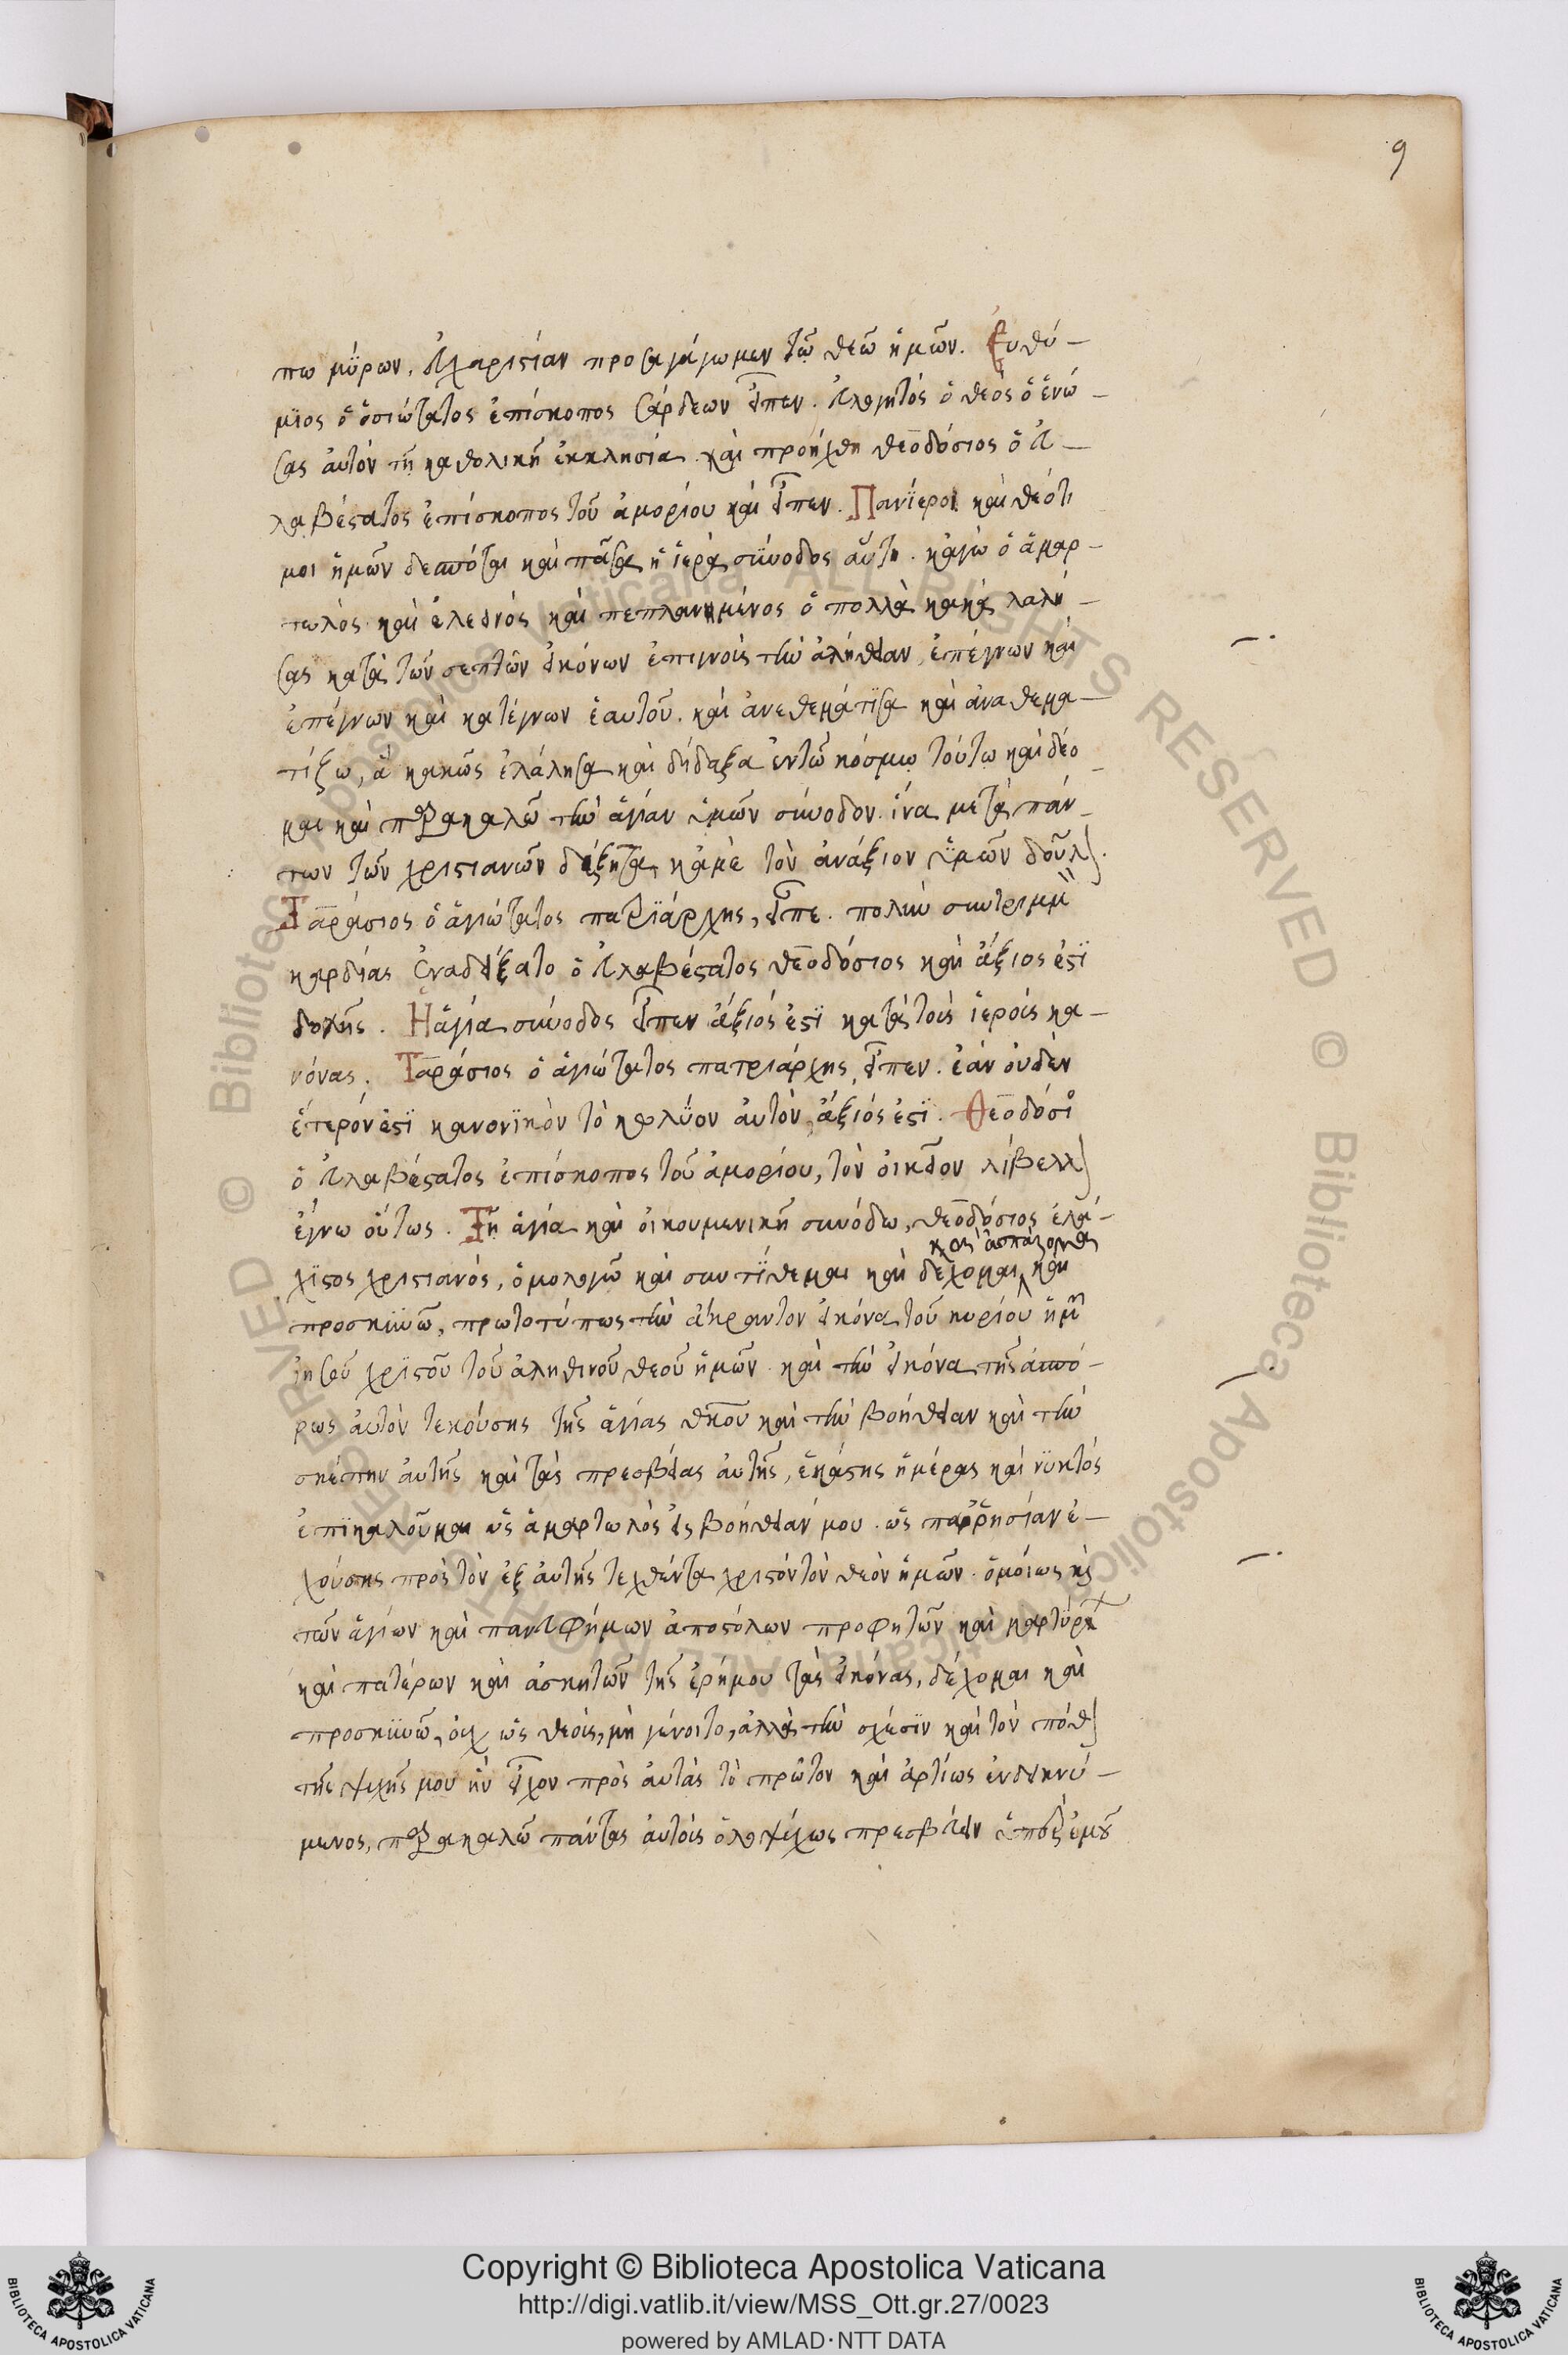 9
πω μύρων, εὐχαριστίαν προσαγάγωμεν τῶ θεῶ ἡμῶν. Εὐθύ-
μιος ὁ ὁσιώτατος ἐπίσκοπος σάρδεων εἶπεν. εὐλογητός ὁ θεὸς ὁ ἑνώ-
σας αὐτὸν τῆ καθολικῆ ἐκκλησία. καὶ προήχθη θεοδόσιος ὁ εὐ-
λαβέστατος ἐπίσκοπος τοῦ ἀμορίου καὶ εἶπεν. Πανίεροι καὶ θεότι
μοι ἡμῶν δεσπόται καὶ πᾶσα ἡ ἱερὰ σύνοδος αὕτη. κἀγὼ ὁ ἁμαρ-
τωλὸς καὶ ἐλεεινός καὶ πεπλανημένος ὁ πολλὰ κακὰ λαλή-
σας κατὰ τῶν σεπτῶν εἰκόνων ἐπιγνοὺς τὴν ἀλήθειαν, ἐπέγνων καὶ
ἐπέγνων καὶ κατέγνων ἑαυτοῦ. καὶ ἀνεθεμάτϊσα καὶ ἀναθεμα-
τίζω, ἃ κακῶς ἐλάλησα καὶ δίδαξα ἐν τῶ κόσμω τούτω καὶ δέο-
μαι καὶ παρακαλῶ τὴν ἁγίαν ὑμῶν σύνοδον. ἵνα μετὰ πάν-
των τῶν χριστιανῶν δέξηται κἀμὲ τὸν ἀνάξιον ὑμῶν δοῦλον.
Ταράσιος ὁ ἁγιώτατος πατριάρχης, εἶπε. πολὺν συντριμμὸν
καρδίας ἐναδείξατο ὁ εὐλαβέστατος θεοδόσιος καὶ ἄξιος ἐστὶ
δοχῆς. Ἡ ἁγία σύνοδος εἶπεν ἄξιός ἐστϊ κατὰ τοὺς ἱεροὺς κα-
νόνας. Ταράσιος ὁ ἁγιώτατος πατριάρχης, εἶπεν. ἐάν οὐδὲν
ἕτερόν ἐστϊ κανονϊκὸν τὸ κωλῦον αὐτὸν, ἄξιός ἐστϊ. Θεοδόσιος
ὁ εὐλαβέστατος ἐπίσκοπος τοῦ ἀμορίου, τὸν οἰκεῖον λίβελλον
ἔγνω οὕτως. Τῆ ἁγία καὶ οἰκουμενικῆ συνόδω, θεοδόσιος ἐλά-
χϊστος χριστιανός, ὁμολογῶ καὶ συντίθεμαι καὶ δέχομαι καὶ
καὶ ἀσπάζομαι
προσκυνῶ, πρωτοτύπως τὴν ἄχραντον εἰκόνα τοῦ κυρίου ἡμῶν
ἰησοῦ χριστοῦ τοῦ ἀληθινοῦ θεοῦ ἡμῶν. καὶ τὴν εἰκόνα τῆς ἀσπό-
ρως αὐτὸν τεκούσης τῆς ἁγίας θκου καὶ τὴν βοήθειαν καὶ τὴν
σκέπην αὐτῆς καὶ τὰς πρεσβείας αὐτῆς, ἑκάστης ἡμέρας καὶ νυκτός
ἐπϊκαλοῦμαι ὡς ἁμαρτωλός εἰς βοήθειάν μου. ὡς παρρησίαν ἐ-
χούσης πρὸς τὸν ἐξ αὐτῆς τεχθέντα χριστὸν τὸν θεὸν ἡμῶν. ὁμοίως καὶ
τῶν ἁγίων καὶ πανευφήμων ἀποστόλων προφητῶν καὶ μαρτύρων
καὶ πατέρων καὶ ἀσκητῶν τῆς ἐρήμου τὰς εἰκόνας, δέχομαι καὶ
προσκυνῶ, οὐχ ὡς θεοὺς, μὴ γένοιτο, ἀλλὰ τὴν σχέσϊν καὶ τὸν πόθον
τῆς ψυχῆς μου ἣν εἶχον πρὸς αὐτὰς τὸ πρῶτον καὶ ἀρτίως ἐνδεικνύ-
μενος, παρακαλῶ πάντας αὐτοὺς ὁλοψύχως πρεσβεύειν ὑπὲρ ἐμοῦ
Copyright © Biblioteca Apostolica Vaticana
http://digi.vatlib.it/view/MSS_Ott.gr.27/0023
powered by AMLAD·NTT DATA
BIBLIOTECA APOSTOLICA VATICANA
BIBLIOTECA APOSTOLICA VATICANA